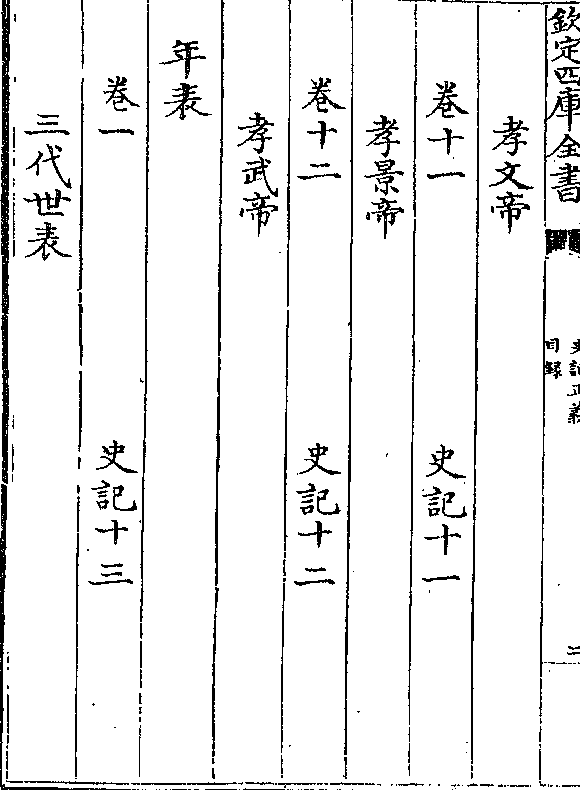 欽定四庫全書
史記正義
目録
二
孝文帝
卷十一　史記十一
孝景帝
卷十二　史記十二
孝武帝
年表
卷一　史記十三
三代世表